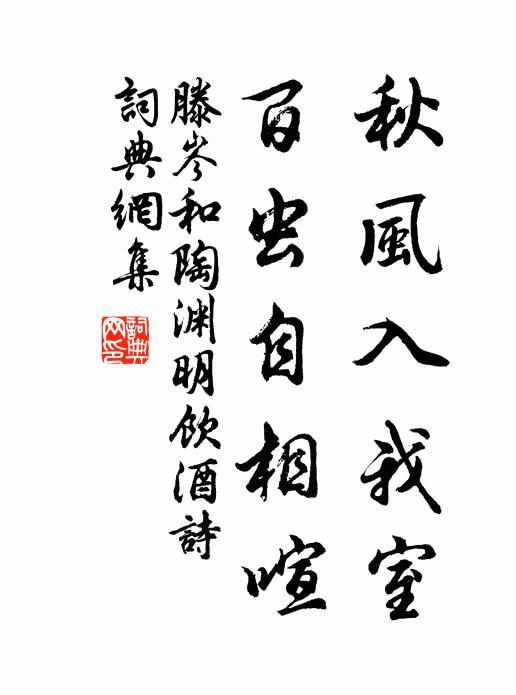 秋風入我室
百虫自相喧
滕岑和陶渊明飲酒詩
詞典網集
詞典
网印